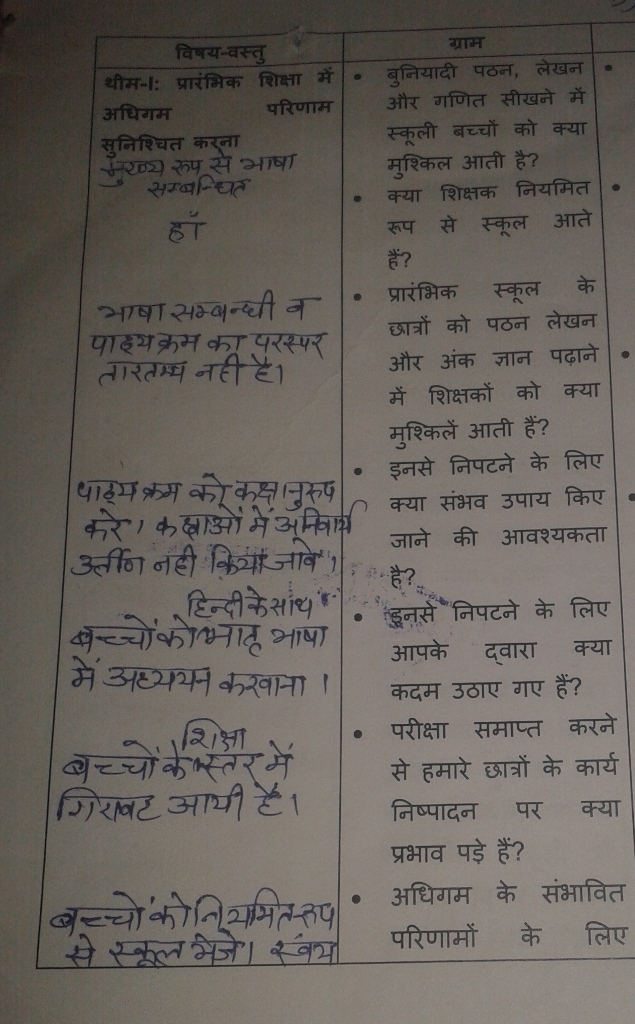 विषय-वस्तु
थीम-I: प्रारंभिक शिक्षा में
अधिगम परिणाम
सुनिश्चित करना
मुख्य रूप से भाषा
सम्बन्धित
हाँ
भाषा सम्बन्धी व
पाठ्यक्रम का परस्पर
तारतम्य नही है।
पाठ्यक्रम को कक्षानुरूप
करे। कक्षाओं में अनिवार्य
उर्तीण नही किया जावे।
हिन्दी के साथ
बच्चों को मातृ भाषा
में अध्ययन करवाना।
शिक्षा
बच्चों के स्तर में
गिरावट आयी है।
बच्चो को नियमित रूप
से स्कूल भेजे। स्वंय
ग्राम
• बुनियादी पठन, लेखन
और गणित सीखने में
स्कूली बच्चों को क्या
मुश्किल आती है?
• क्या शिक्षक नियमित
रूप से स्कूल आते
हैं?
• प्रारंभिक स्कूल के
छात्रों को पठन लेखन
और अंक ज्ञान पढ़ाने
में शिक्षकों को क्या
मुश्किलें आती हैं?
• इनसे निपटने के लिए
क्या संभव उपाय किए
जाने की आवश्यकता
है?
• इनसे निपटने के लिए
आपके द्वारा क्या
कदम उठाए गए हैं?
• परीक्षा समाप्त करने
से हमारे छात्रों के कार्य
निष्पादन पर क्या
प्रभाव पड़े हैं?
• अधिगम के संभावित
परिणामों के लिए